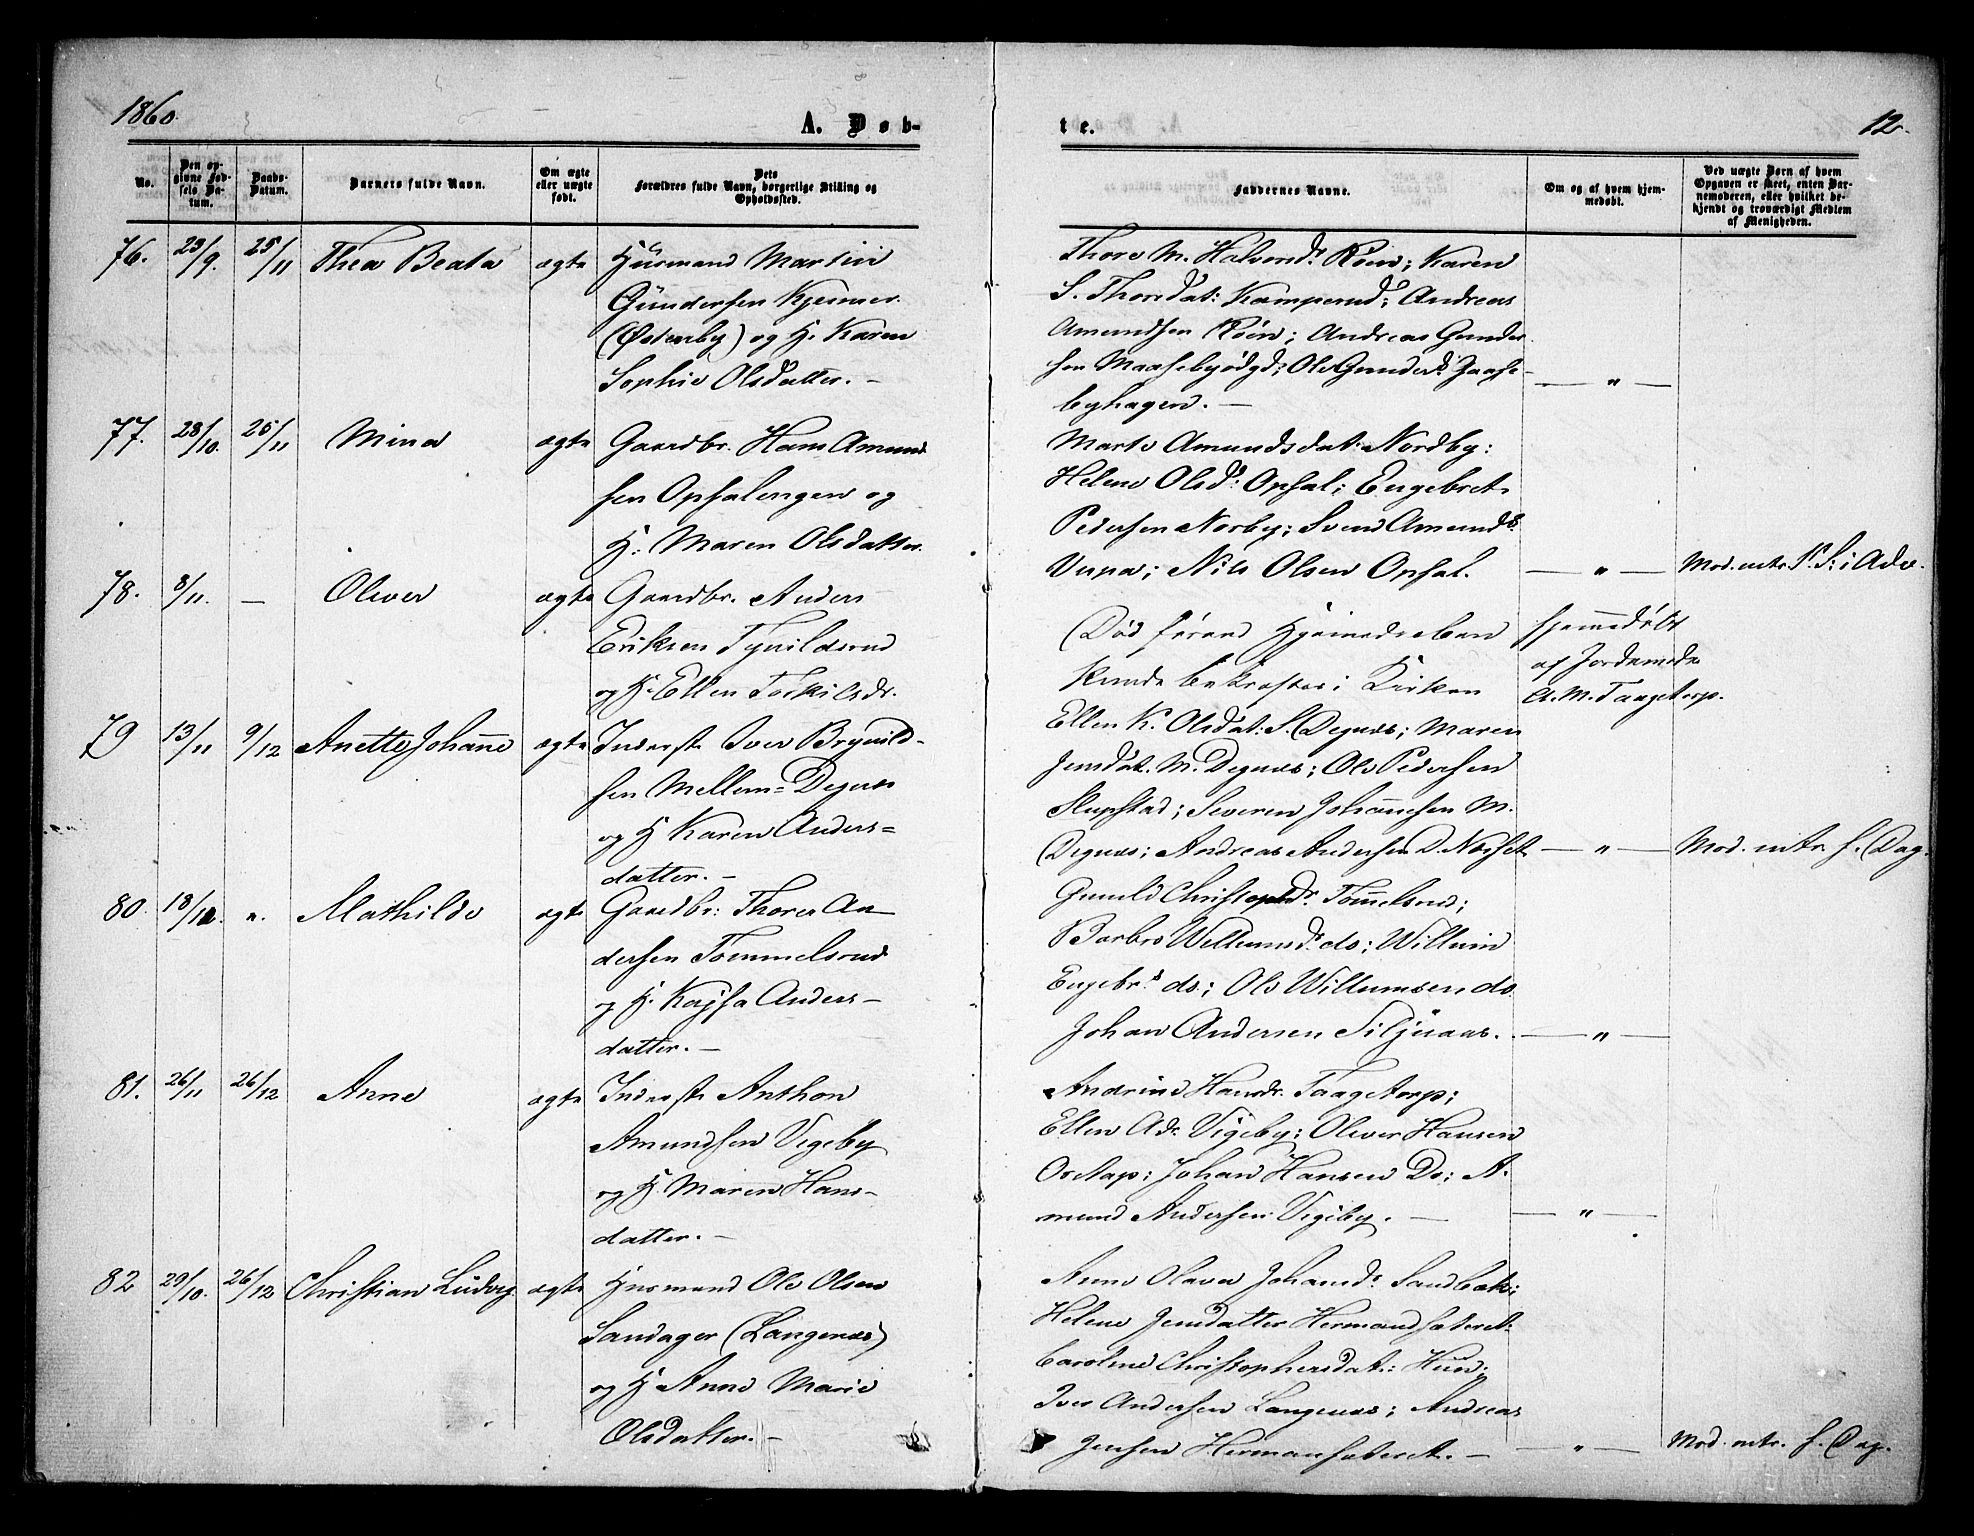 1860.
A. Døb-
No.
Den op-
givne Fød-
sels Da-
tum.
Daabs-
Datum.
Barnets fulde Navn.
Om ægte
eller uægte
født.
Dets
Forældres fulde Navn, borgerlige Stilling og
Opholdssted.
76. 23/9. 25/11 Thea Beata ægte Huusmand Martin
Gundersen
(Østenby) og H. Karen
Sophie Olsdatter. –
77. 28/10. 25/11 Mina ægte Gaardbr. Hans Amund
sen Opsalengen og
H. Maren Olsdatter.
78. 8/11. — Oliver ægte Gaardbr. Anders
Eriksen
og H. Ellen Torkilsdr.
79 13/11 9/12 Anette Johanne ægte Inderste Iver Brynild-
sen Mellem-Degnes
og H Karen Anders=
datter. –
80. 18/11. ". Mathilde ægte Gaardbr: Thorer An
dersen Tommelsrud
og H. Kajsa Anders–
datter. –
81. 26/11 26/12 Anne ægte Inderste Anthon
Amundsen Vigeby
og H. Maren Hans-
datter. –
82 29/10. 26/12 Christian Ludvig ægte Husmand Ole Olsen
Sandager (Langenæs)
og H Anne Marie
Olsdatter. –
te.
12.
Faddernes Navne.
Om og af hvem hjem-
medøbt.
Ved uægte Børn af hvem
Opgaven er skeet, enten Bar-
nemoderen, eller hvilket be-
kjendt og troværdigt Medlem
af Menigheden.
Thore M. Karen
S. Thoresdat: Kamperud; Andreas
Amundsen Andreas Gunder
sen Ole Gunders.
byhagen. —
— " —
Marte Amundsdat: Nordby:
Helene Olsd: Opsal; Engebret
Pedersen Norby; Svend Amunds.
Nils Olsen Opsal. — " — Mod. mtr.
(Død førend Hjemmedaaben
kunde bekræftes i Kirken
Hjemmedøbt
af Jordemoder
A. M. Taagetorp.
Ellen K. Olsdat: S. Degnes; Maren
Jensdat. M. Degnes; Ole Pedersen
Slupstad; Severin Johannesen M.
Degnes; Andreas Andersen D. — " — Mod. mtr. s. Dag.
Gunild Christophdr. Tommelsrud;
Barbro Willumsd. do; Willum
Engebr.s do; Ole Willumsen do
Johan Andersen Siljuaas. — " —
Andrine Hansdr. Taagetorp;
Ellen Adr. Vigeby; Oliver Hansen
Johan Hansen Do; A-
mund Andersen Vigeby. — — " —
Anne Olava Johansdr. Sandbæk;
Helene Jensdatter Hermandsæteret:
Caroline Christophersdat:
Iver Andersen Langenæs; Andreas
Jensen Hermansæteret. – — " — Mod. mtr. s. Dag.